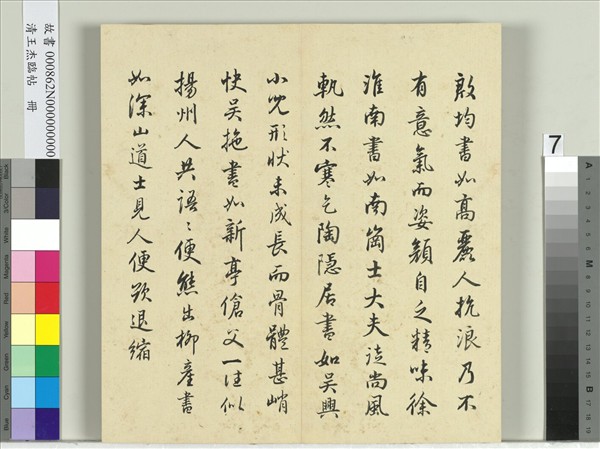 殷均書如高麗人抗浪乃不
有意氣而姿顏自乏精味徐
淮南書如南崗士大夫徒尚風
軌然不寒乞陶隱居書如吳興
小兒形狀未成長而骨體甚峭
快吳拖書如新亭傖父一往似
揚州人共語〻便態出柳產書
如深山道士見人便欲退縮
故書 000862N000000000
清王杰臨帖 冊
7
Black
3/Color
White
Magenta
Red
Yellow
Green
Cyan
Blue
A
1
2
3
4
5
6
M
8
9
10
11
12
13
14
15
B
17
18
19